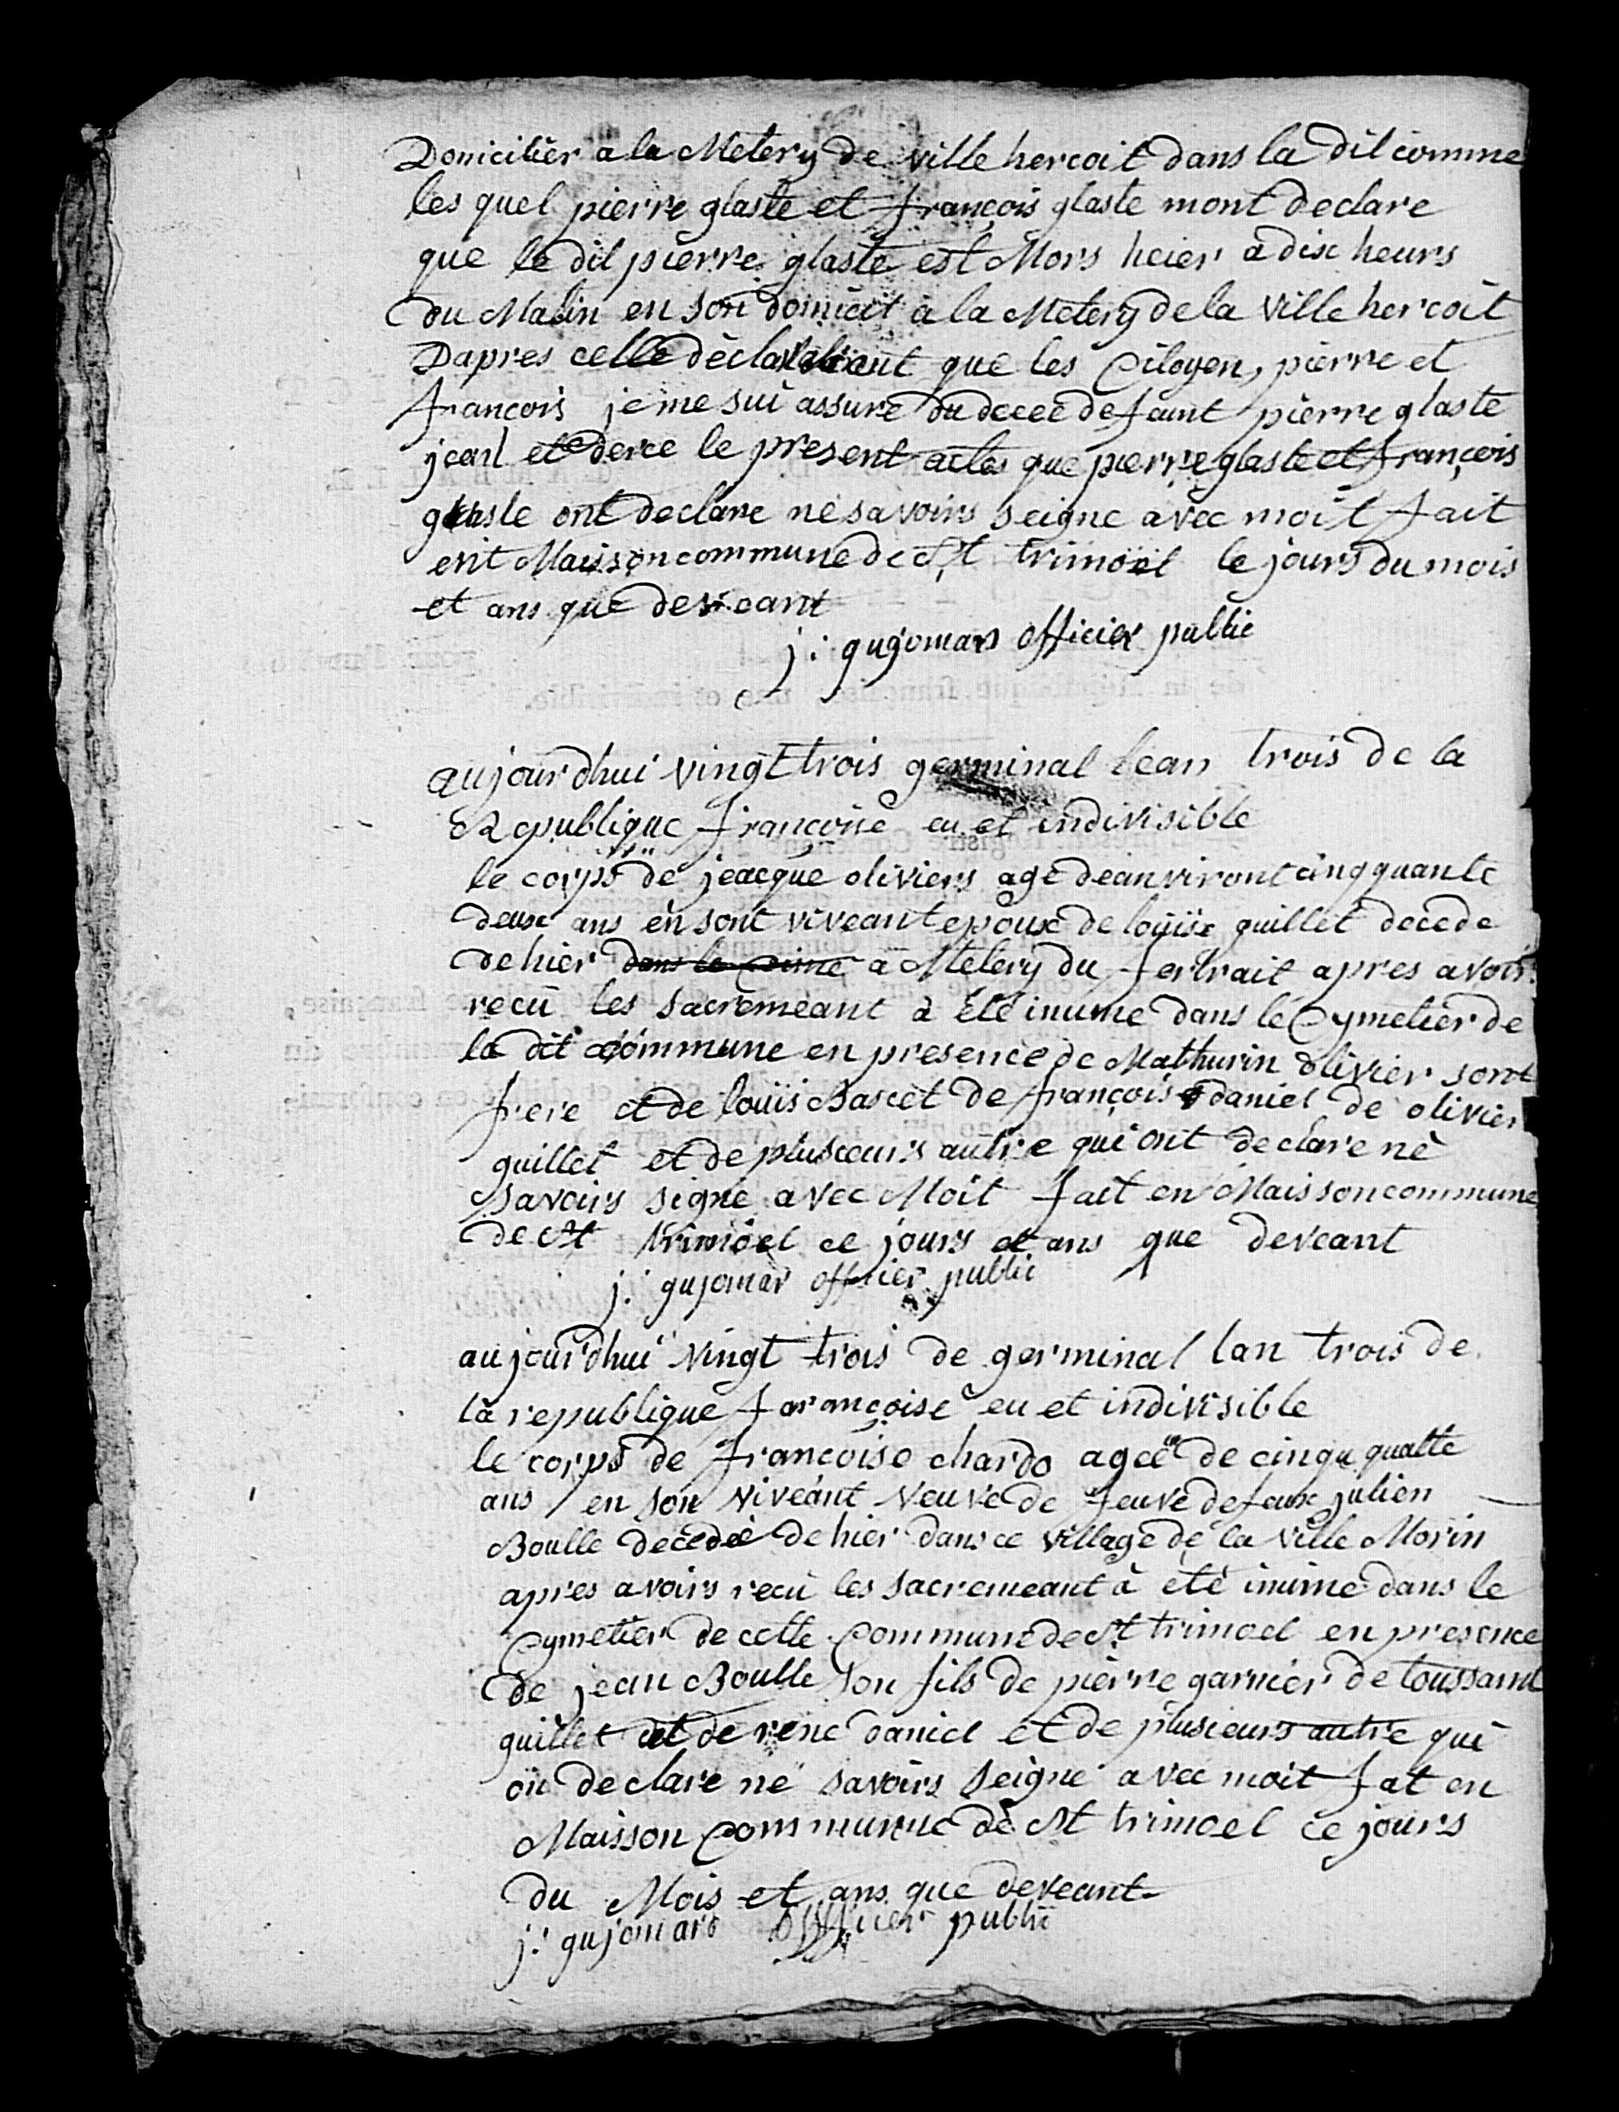 Domicilier a la Metery de ville hercoit dans la dit comme
les quel pierre glaste et françois glaste mont declare
que le dit pierre glaste est Mors heier a dix heurs
du Matin en son domicit à la Metery de la ville hercoit
Dapres cette déclaratiant que les Citoyen, pierre et
francois je me sui assure du decee defaunt pierre glaste
jean et derce le present actes que pierre glaste et françois
glasle ont declare ne savoirs seigne avec moit fait
ent Maisson commune de St trimoël le jours du mois
et ans que deveant
j: gujomars officier public
aujourdhui vingt trois germinal lean trois de la
Republique françoise eu et indivisible
le corps de jeacque oliviers age deanviront cinqquante
deux ans èn sont viveant epoux de loüise guillet decede
de hier a Metery du fertrait apres avoir
recu les sacremeant à été inume dans le Cymetier de
la dit commune en presence de Mathurin olivier sont
frere et de loüis Bascet de françois daniel de olivier
guillet et de plusieurs autre qui ont declare nè
savoirs signe avec Moit fait en Maisson commune
de St trimöel ce jours et ans que deveant
j: gujomar officier public
aujourdhui vingt trois de germinal lan trois de
la republique farançoise eu et indivisible
le corps de françoise chardo agee de cinqu quatte
ans en son viveant veuve de feuve defeux julien
Boulle décédée de hier dans ce village de la ville Morin
apres avoirs recu les sacremeant à étè inume dans le
Cymetier de cette Commune de St trimoel en presence
de jean Boulle son fils de pierre garnier de toussaint
guillet et de rene daniel et de plusieurs autre qui
on declare ne savoirs seigne avec moit fat en
Maisson Commune de St trimoel ce jours
du Mois et ans que deveant
j: gujomars officier public